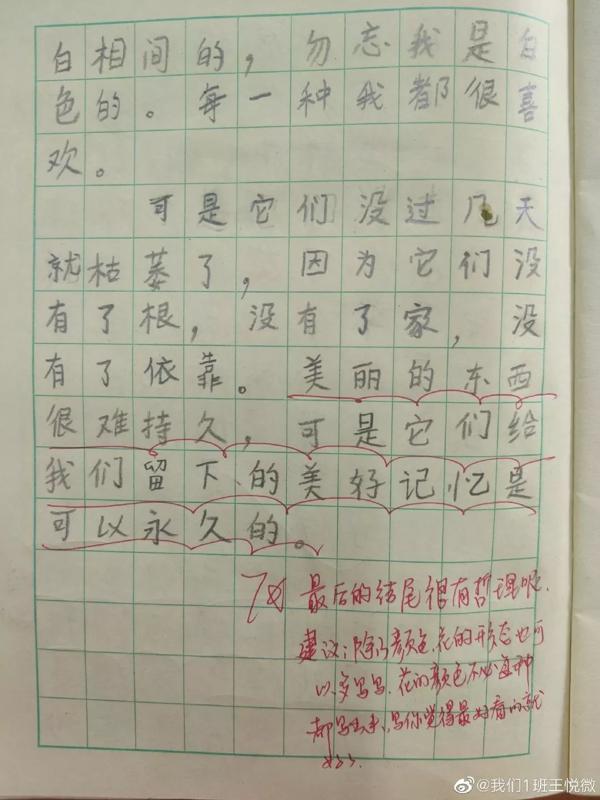 白相间的，勿忘我是白
色的。每一种我都很喜
欢。
可是它们没过几天
就枯萎了，因为它们没
有了根，没有了家，没
有了依靠。美丽的东西
很难持久，可是它们给
我们留下的美好记忆是
可以永久的。
最后的结尾很有哲理呢.
建议:除了颜色,花的形态也可
以多写写.花的颜色不必每种
都写出来,写你觉得最好看的就
好了.
@我们1班王悦微